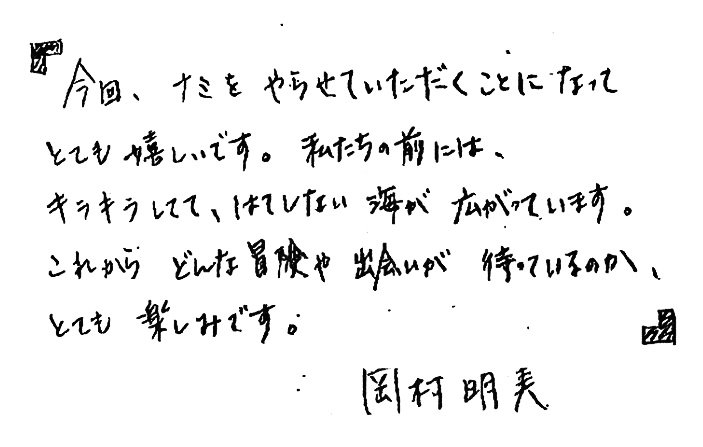 『今回、ナミをやらせていただくことになって
とても嬉しいです。私たちの前には、
キラキラしてて、はてしない海が広がっています。
これからどんな冒険や出会いが待っているのか、
とても楽しみです。』
岡村明美